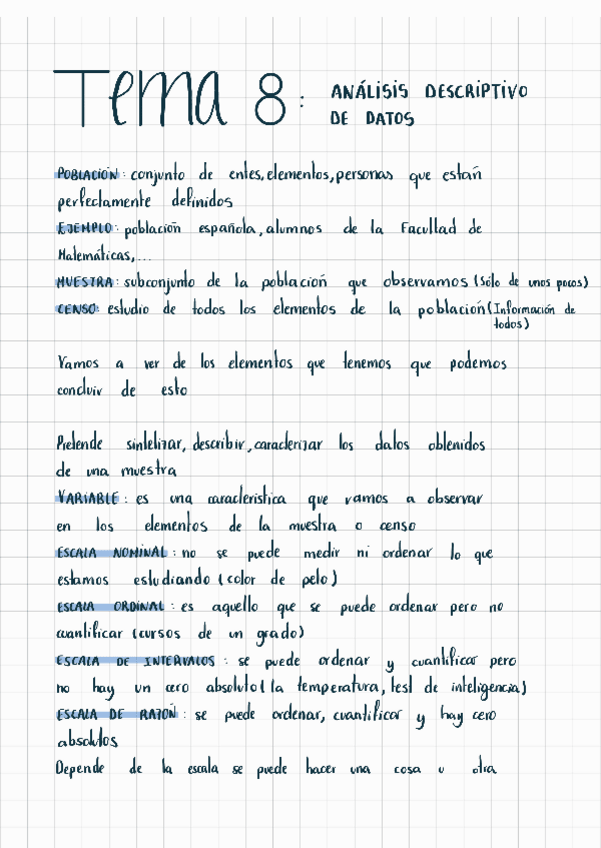 Tema 8: ANÁLISIS DESCRIPTIVO
DE DATOS
POBLACIÓN: conjunto de entes, elementos, personas que están
perfectamente definidos
EJEMPLO: población española, alumnos de la Facultad de
Matemáticas,...
MUESTRA: subconjunto de la población que observamos (Sólo de unos pocos)
CENSO: estudio de todos los elementos de la población (Información de
todos)
Vamos a ver de los elementos que tenemos que podemos
concluir de esto
Pretende sintetizar, describir, caracterizar los datos obtenidos
de una muestra
VARIABLE: es una característica que vamos a observar
en los elementos de la muestra o censo
ESCALA NOMINAL: no se puede medir ni ordenar lo que
estamos estudiando (color de pelo)
ESCALA ORDINAL: es aquello que se puede ordenar pero no
cuantificar (cursos de un grado)
ESCALA DE INTERVALOS: se puede ordenar y cuantificar pero
no hay un cero absoluto (la temperatura, test de inteligencia)
ESCALA DE RAZÓN: se puede ordenar, cuantificar y hay cero
absolutos
Depende de la escala se puede hacer una cosa u otra